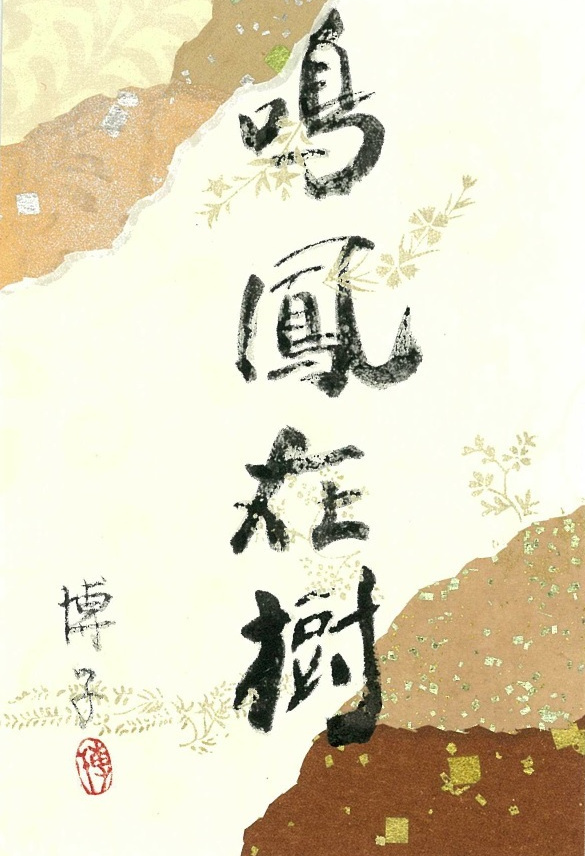 鳴鳳在樹
博子
博